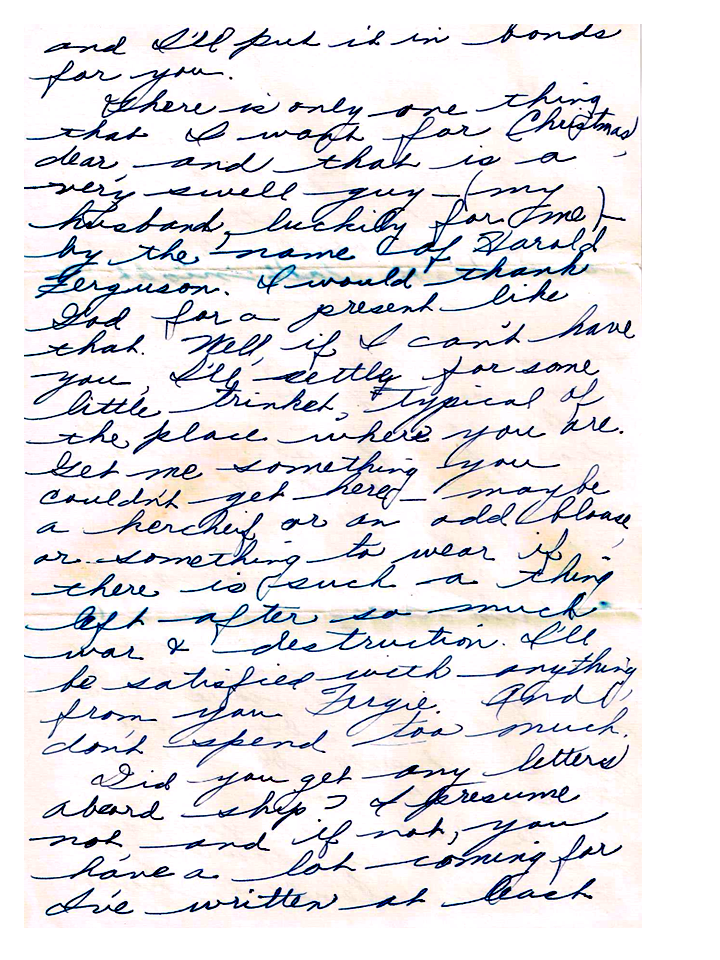 and I'll put it in bonds
for you.
There is only one thing
that I want for Christmas,
dear and that is a
very swell guy - (my
husband, luckily for me) -
by the name of Harold
Ferguson. I would thank
God for a present like
that. Well, if I can't have
you, I'll settle for some
little trinket, typical of
the place where you are.
Get me something you
couldn't get here - maybe
a kercheif or an odd blouse,
or something to wear if
there is such a thing
left after so much
war & destruction. I'll
be satisfied with anything,
from you Fergie. And
don't spend too much.
Did you get any letters
aboard ship? I presume
not and if not, you
have a lot coming for
I've written at least